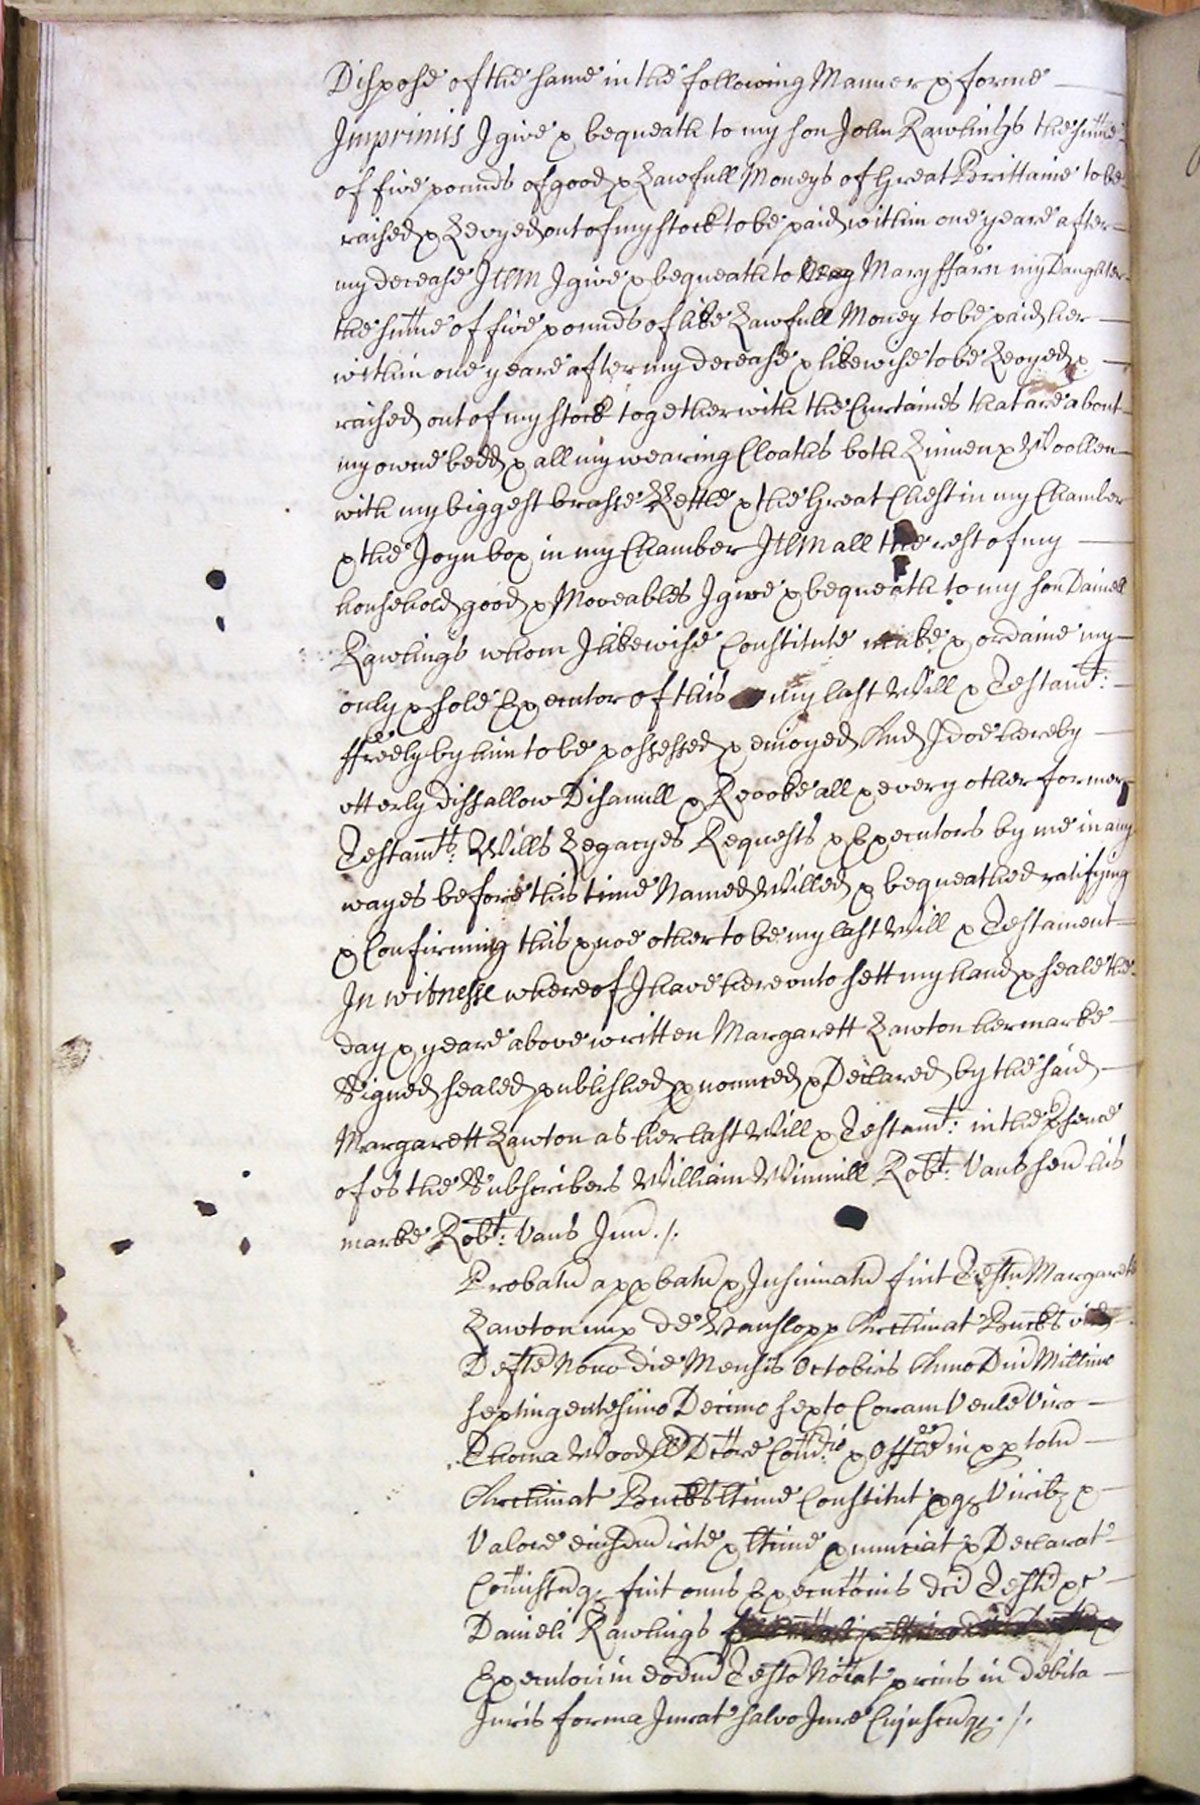 Dispose of the same in the following Manner & forme
Imprimis I give & bequeath to my son John Rawlings the sume
of five pounds of good & Lawfull Moneys of Great Brittaine to be
raised & Levyed out of my stock to be paid within one yeare after
my decease Item I give & bequeath to Mary ffarn my Daughter
the sume of five pounds of like Lawfull Money to be paid her
within one yeare after my decease & likewise to be Levyed &
raised out of my stock together with the Curtaines that are about
my owne bedd & all my wearing Cloaths both Linnen & Woollen
with my biggest brasse Kettle & the Great Chest in my Chamber
& the Joyn box in my Chamber Item all the rest of my
household good & Moveables I give & bequeath to my son Daniell
Rawlings whom I likewise Constitute make & ordaine my
only & sole Executor of this my last Will & Testamt:
ffreely by him to be possessed & enioyed And I doe hereby
utterly dissallow Disanull & Revoke all & every other former
Testamts: Wills Legacyes Requests & Executors by me in any
wayes before this time Named Willed & bequeathed ratifying
& Confirming this & noe other to be my last Will & Testament
In witnesse whereof I have hereunto sett my hand & seale the
day & yeare above written Margarett Lawton her marke
Signed sealed published pnounced & Declared by the said
Margarett Lawton as her last Will & Testamt: in the psence
of us the Subscribers William Winmill Robt: Vans sen his
marke Robt: Vans Jun ./.
Probatu appbatu & Insinuatu fuit Testu Margarete
Lawton nup de Hanslopp Archinat Bucks
Defte Nono die Mensis Octobris Anno Dni Millimo
septingentesimo Decimo sexto Coram Venle Viro
Thoma Woodll Dctore & Offle in pp totu
Archinat Bucks ltime Constitut pq Virib &
Valore eiusdm rite & ltime pnunciat & Declarat
Comissaq fuit onus Executonis dci Testi &c
Danieli Rawlings
Executori in eodm Testo Noiat prius in debita
Juris forma Jurat salvo Jure Cujuscuq ./.